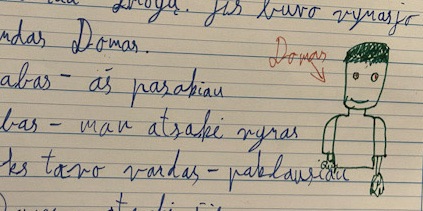 žmogų. Jis buvo vyrasjo
ndas Domas.
Domas
abas - aš pasakiau
bas - man atsakė vyras
ks tavo vardas - paklausiau